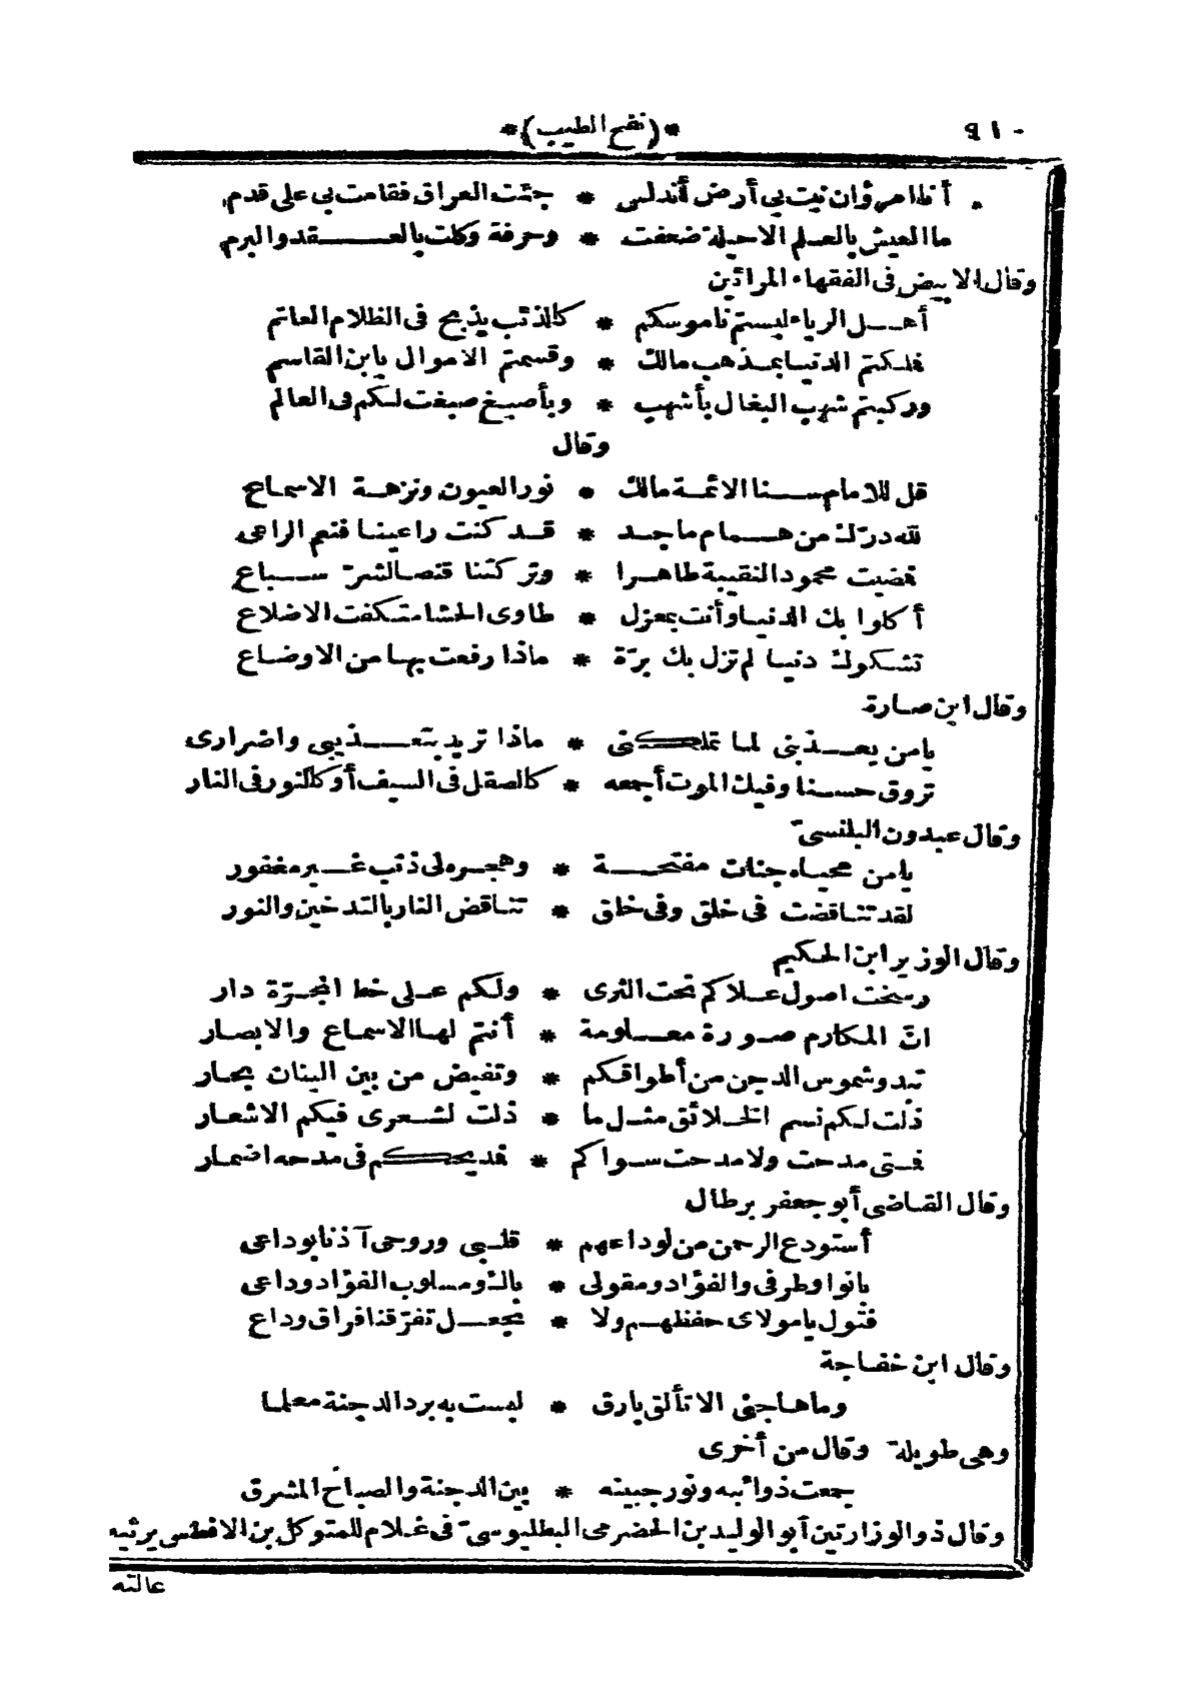 ٩١٠ *(نفح الطيب)*
أنا امرؤ ان نبت بي أرض أندلس * جئت العراق فقامت بي على قدم
ما العيش بالعلم الا حيلة ضعفت * وحرفة وكلت بالعقد والبرم
وقال الابيض فى الفقهاء المرائين
أهل الرياء لبستم ناموسكم * كالذئب يدبج فى الظلام العاتم
فلكتم الدنيا بمذهب مالك * وقسمتم الاموال بابن القاسم
وركبتم شهب البغال بأشهب * وبأصبغ صبغت لكم فى العالم
وقال
قل للامام سنا الائمة مالك * نور العيون ونزهة الاسماع
لله درّك من همام ماجد * قد كنت راعينا فنعم الراعى
فضيت محمود النقيبة طاهرا * وتركتنا قنصا لشرّ سباع
أكلوا بك الدنيا وأنت بمعزل * طاوى الحشا متكفت الاضلاع
تشكوك دنيا لم تزل بك برّة * ماذا رفعت بها من الاوضاع
وقال ابن صارة
يا من يعذبنى لما تملكنى * ماذا تريد بتعذيبى واضرارى
تروق حسنا وفيك الموت أجمعه * كالصقل فى السيف أو كالنور فى النار
وقال عبدون البلنسىّ
يا من محياه جنات مفتحة * وهجره لى ذنب غير مغفور
لقد تناقضت فى خلق وفى خلق * تناقض النار بالتدخين والنور
وقال الوزير ابن الحكيم
رسخت اصول علاكم تحت الثرى * ولكم على خط المجرّة دار
انّ المكارم صورة معلومة * أنتم لها الاسماع والابصار
تبدو شموس الدجن من أطواقكم * وتفيض من بين البنان بحار
ذلت لكم نسم الخلائق مثل ما * ذلت لشعرى فيكم الاشعار
فتى مدحت ولا مدحت سواكم * فمديحكم فى مدحه اضمار
وقال القاضى أبو جعفر برطال
أستودع الرحمن من لوداعهم * قلبى وروحى آذنا بوداعى
بانوا وطرفى والفؤاد ومقولى * باك ومسلوب الفؤاد وداعى
فتول يا مولاى حفظهم ولا * تجعل تفرّقنا فراق وداع
وقال ابن خفاجة
وما هاجنى الا تألق بارق * لبست به برد الدجنة معلما
وهى طويلة وقال من أخرى
جمعت ذوائبه ونور جبينه * بين الدجنة والصباح المشرق
وقال ذو الوزارتين أبو الوليد بن الحضرمى البطليوسىّ فى غلام للمتوكل بن الافطس يرثيه
عالته